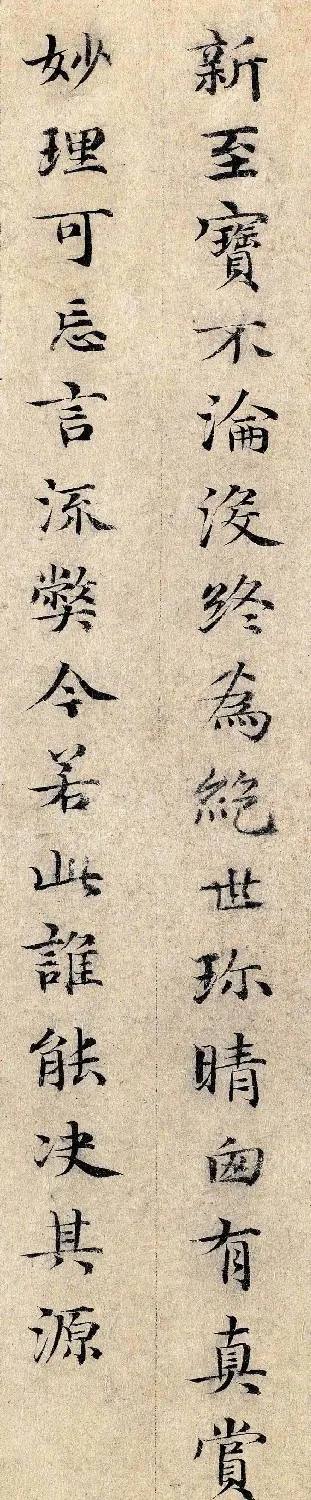 新至寶不淪没終為絕世珎晴囱有真賞
妙理可忘言流弊今若此誰能决其源